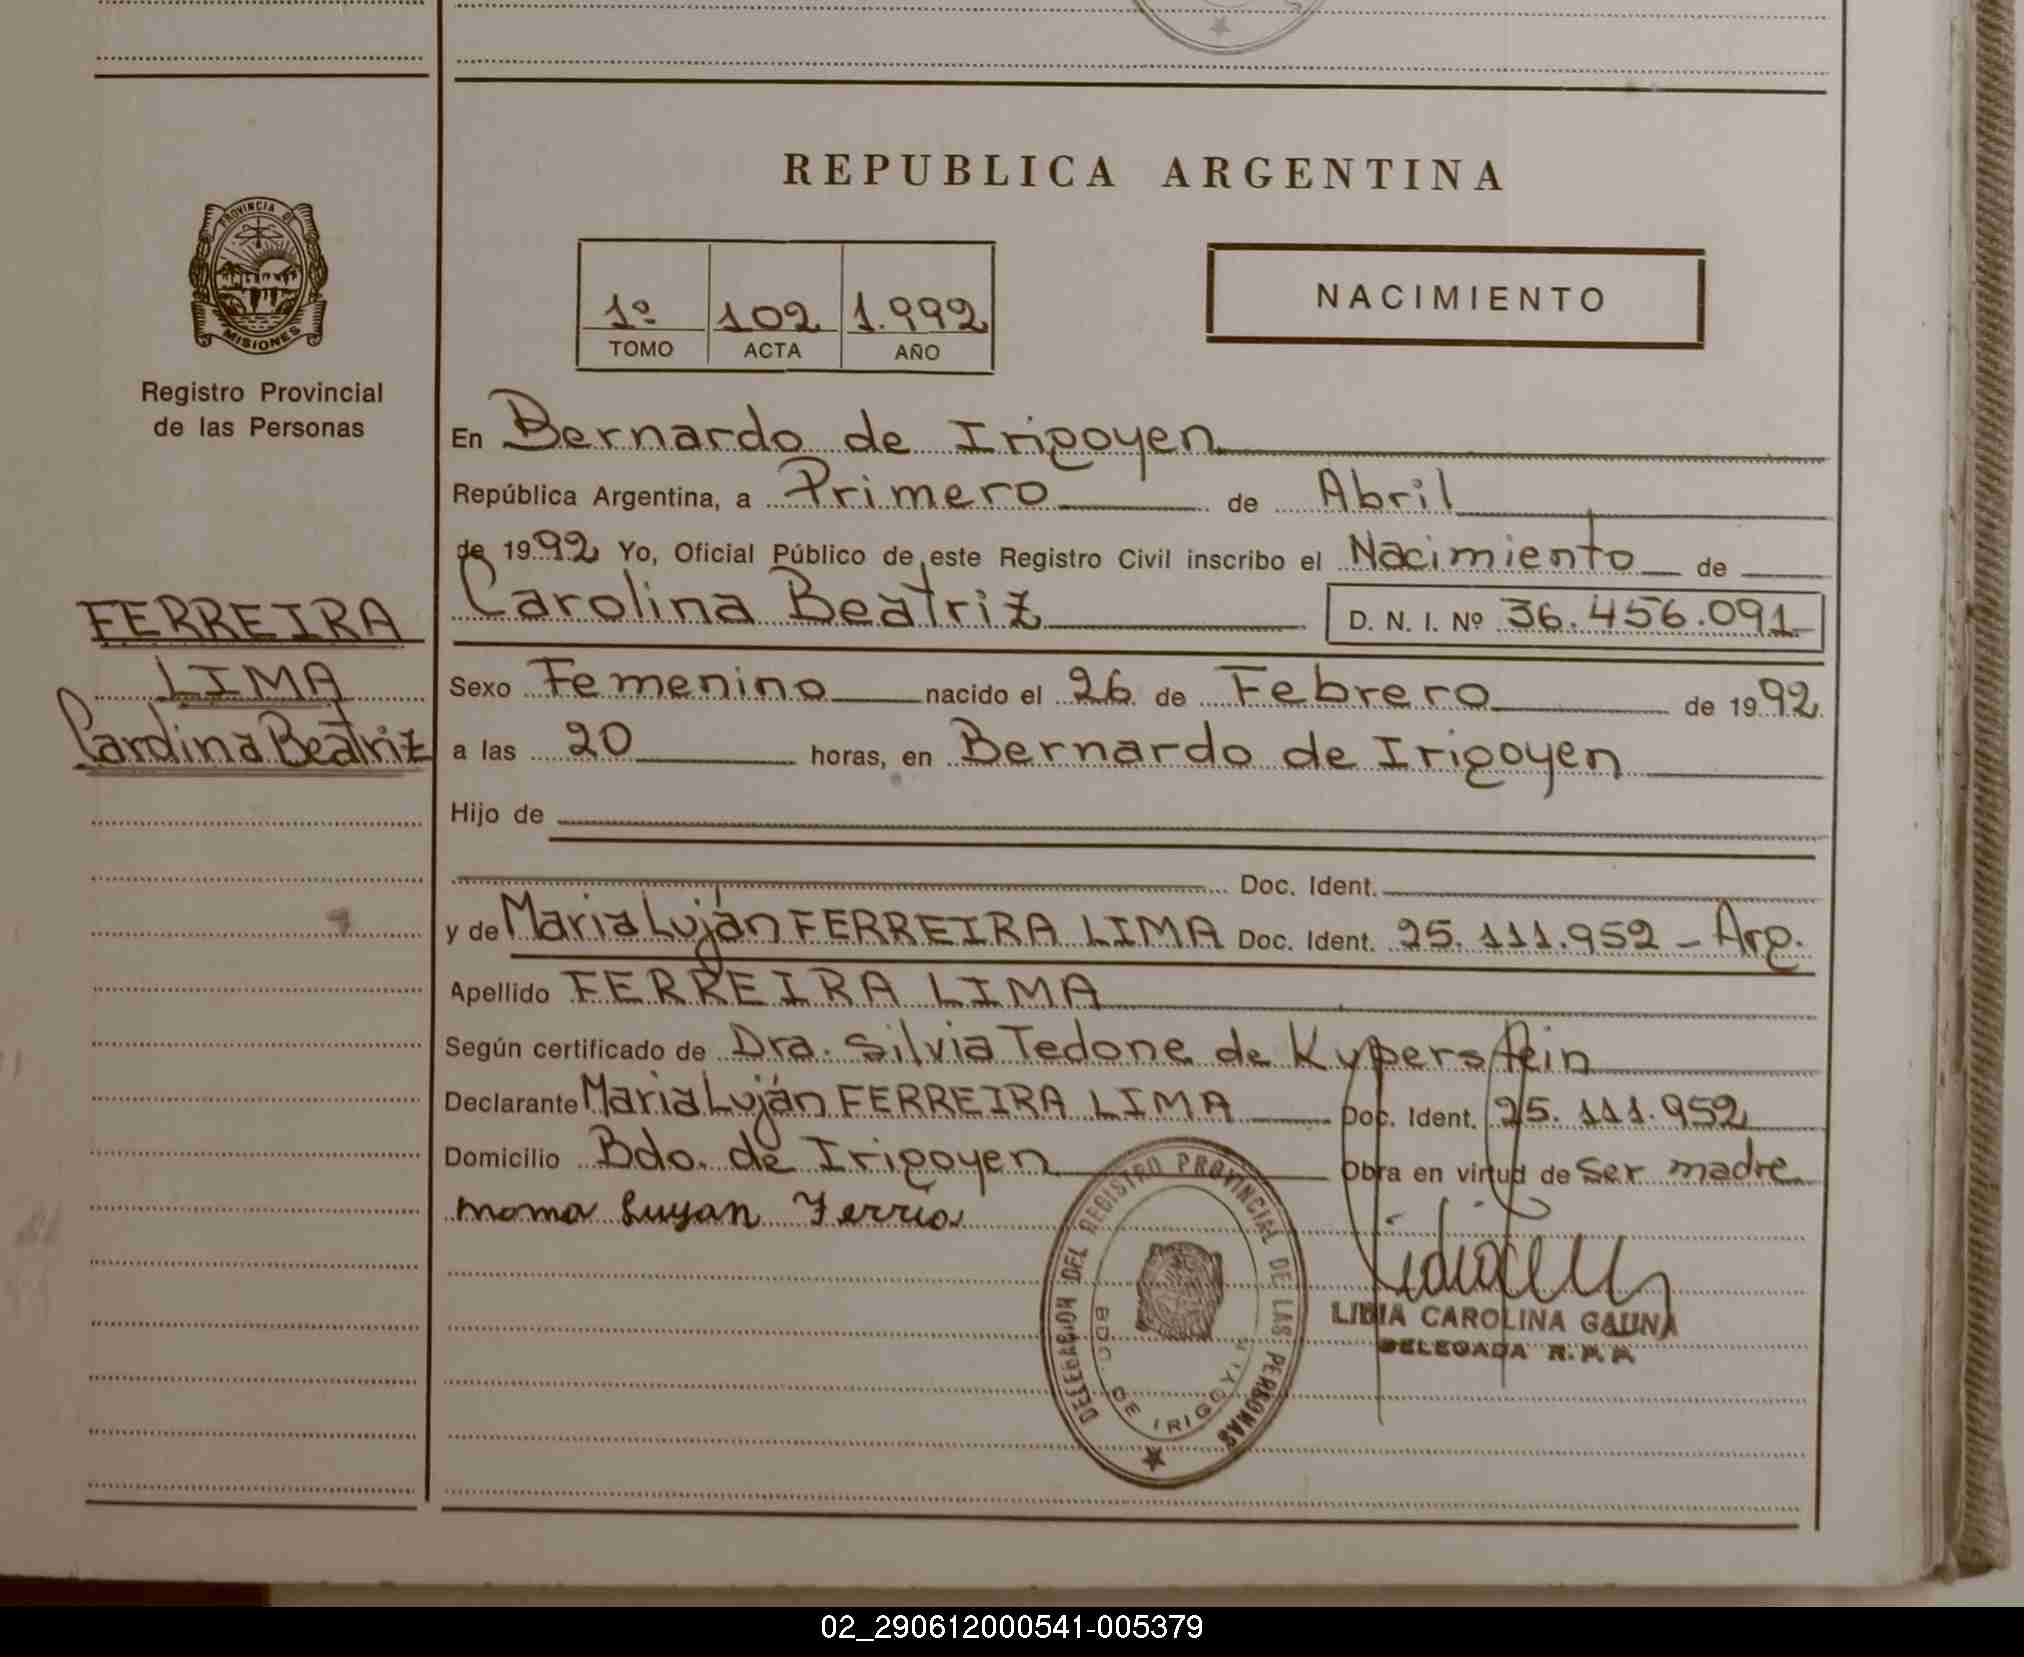 REPUBLICA ARGENTINA
PROVINCIA DE
MISIONES
Registro Provincial
de las Personas
1º 102 1.992
TOMO ACTA AÑO
NACIMIENTO
FERREIRA
LIMA
Carolina Beatriz
En Bernardo de Irigoyen
República Argentina, a Primero de Abril
de 1992 Yo, Oficial Público de este Registro Civil inscribo el Nacimiento de
Carolina Beatriz D. N. I. Nº 36.456.091
Sexo Femenino nacido el 26 de Febrero de 1992
a las 20 horas, en Bernardo de Irigoyen
Hijo de
Doc. Ident.
y de Maria Luján FERREIRA LIMA Doc. Ident. 25.111.952 - Arg.
Apellido FERREIRA LIMA
Según certificado de Dra. Silvia Tedone de Kyperstein
Declarante Maria Luján FERREIRA LIMA Doc. Ident. 25.111.952
Domicilio Bdo. de Irigoyen Obra en virtud de ser madre
DELEGACION DEL REGISTRO PROVINCIAL DE LAS PERSONAS
BDO. DE IRIGOYEN
LIDIA CAROLINA GAUNA
DELEGADA R.P.P.
02_290612000541-005379